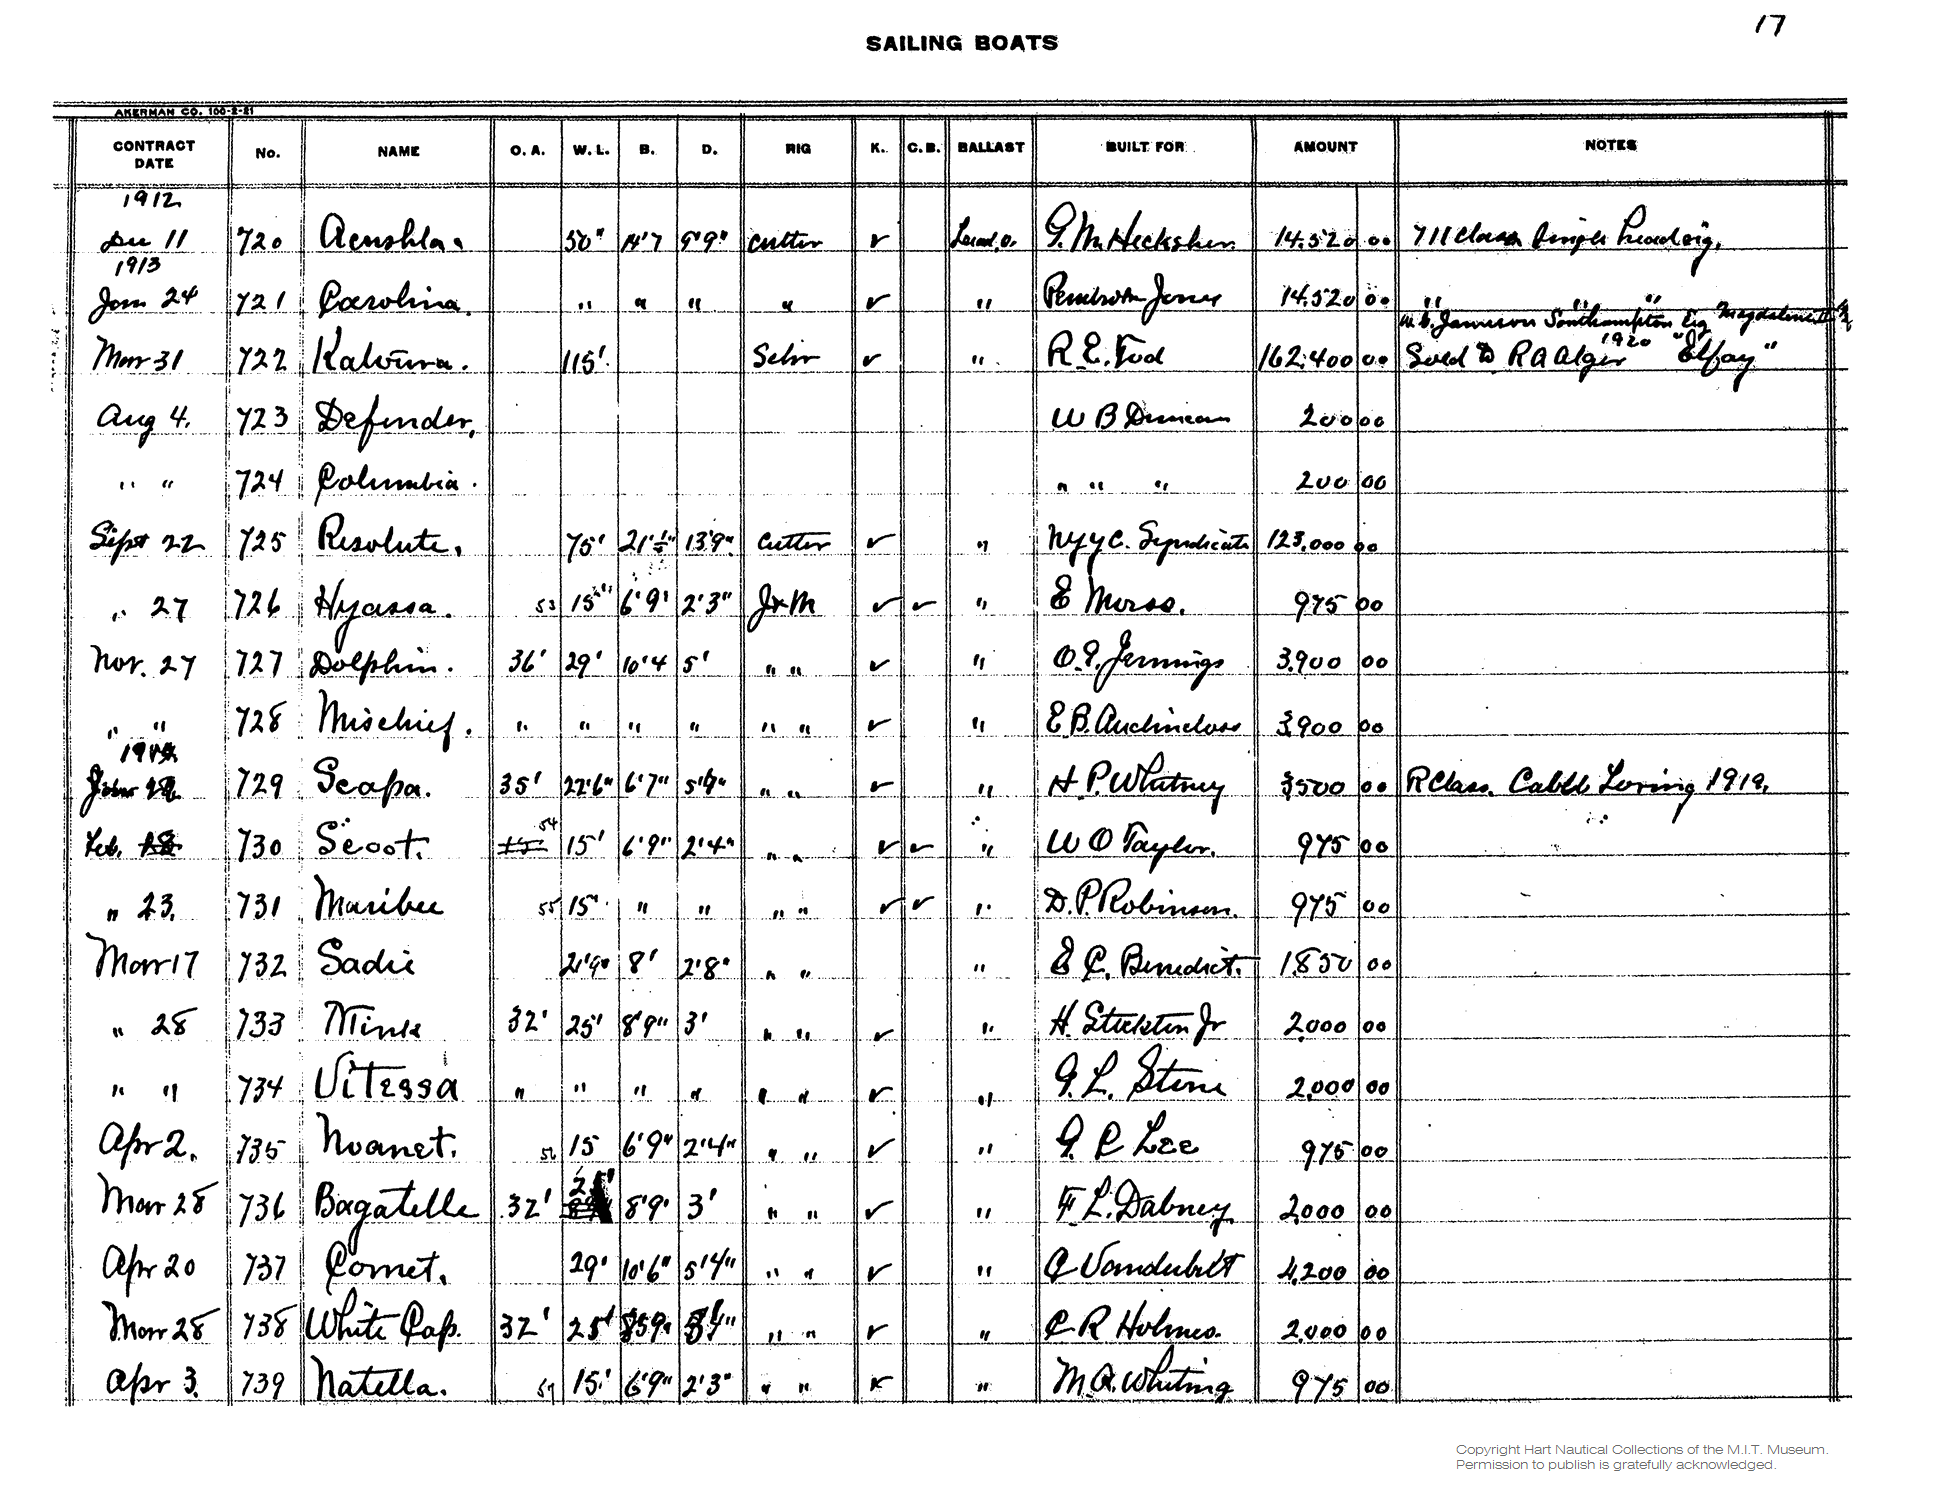 17
SAILING BOATS
AKERMAN CO. 100-2-21
CONTRACT DATE No. NAME O. A. W. L. B. D. RIG K. C. B. BALLAST BUILT FOR AMOUNT NOTES
1912
Dec 11 720 Acushla. 50" 14'7 9'9" Cutter ✓ Lead o. G. M. Hecksher. 14.520 00 711 Class Single head rig.
1913
Jan 24 721 Carolina. " " " " ✓ " Pembroke Jones 14.520 00 " " "
W. G. Jameson Southampton Eng Magdalene II
Mar 31 722 Katoura. 115'. Schr ✓ " R. E. Tod 162.400 00 Sold to R A Alger 1920 "Elfay"
Aug 4. 723 Defender. W B Duncan 200 00
" " 724 Columbia. " " " 200 00
Sept 22 725 Resolute. 75' 21'½" 13'9" Cutter ✓ " N Y Y C. Syndicate 123.000 00
" 27 726 Hyassa. 53 15' 6'9' 2'3" J & M ✓ ✓ " E Morss. 975 00
Nov. 27 727 Dolphin. 36' 29' 10'4 5' " " ✓ " O. G. Jennings 3.900 00
" " 728 Mischief. " " " " " " ✓ " E B. Auchincloss 3.900 00
729 Scapa. 35' 22'6" 6'7" " " ✓ " H. P. Whitney 3500 00 R Class. Loring 1919.
Feb. 730 Scoot. 54 15' 6'9" 2'4" " " ✓ ✓ " W O Taylor. 975 00
" 23. 731 Maribee 55 15' " " " " ✓ ✓ " D. P. Robinson. 975 00
Mar 17 732 Sadie 21'9" 8' 2'8" " " " E C. Benedict. 1.850 00
" 28 733 Mink 32' 25' 8'9" 3' " " ✓ " H. Stockton Jr 2.000 00
" " 734 Vitessa " " " " " " ✓ " G. L. Stone 2.000 00
Apr 2. 735 Noanet. 56 15 6'9" 2'4" " " ✓ " G. C Lee 975 00
Mar 28 736 Bagatelle 32' 25' 8'9' 3' " " ✓ " F. L. Dabney 2.000 00
Apr 20 737 Comet. 29' 10'6" 5'4" " " ✓ " C Vanderbilt 4.200 00
Mar 28 738 White Cap. 32' 25' " " ✓ " C R Holmes. 2.000 00
Apr 3. 739 Natella. 57 15' 6'9" 2'3" " " ✓ " M. A. Whiting 975 00
Copyright Hart Nautical Collections of the M.I.T. Museum.
Permission to publish is gratefully acknowledged.